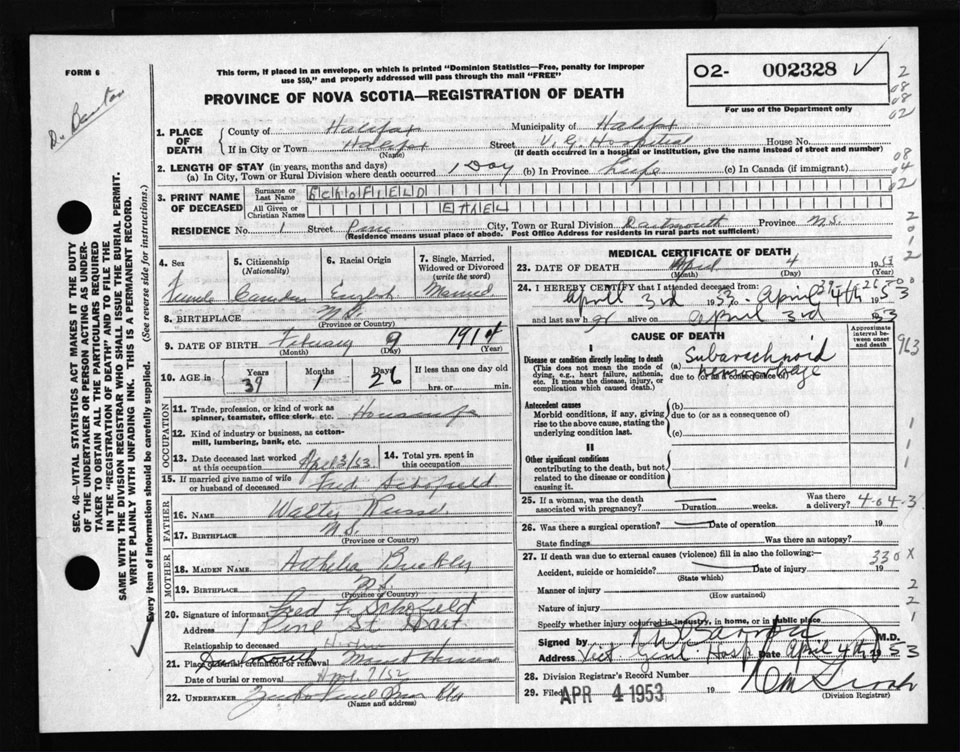 FORM 6
This form, if placed in an envelope, on which is printed "Dominion Statistics—Free, penalty for improper
use $50," and properly addressed will pass through the mail "FREE"
O2- 002328
For use of the Department only
PROVINCE OF NOVA SCOTIA—REGISTRATION OF DEATH
1. PLACE OF DEATH
County of Halifax Municipality of Halifax
If in City or Town Halifax Street V. G. Hospital House No.
(Name) (If death occurred in a hospital or institution, give the name instead of street and number)
2. LENGTH OF STAY (in years, months and days)
(a) In City, Town or Rural Division where death occurred 1 Day (b) In Province Life (c) In Canada (if immigrant)
3. PRINT NAME OF DECEASED
Surname or Last Name SCHOFIELD
All Given or Christian Names
RESIDENCE No. 1 Street Pine City, Town or Rural Division Dartmouth Province N.S.
(Residence means usual place of abode. Post Office Address for residents in rural parts not sufficient)
4. Sex
Female
5. Citizenship (Nationality)
Canadian
6. Racial Origin
English
7. Single, Married, Widowed or Divorced (write the word)
Married
8. BIRTHPLACE N.S.
(Province or Country)
9. DATE OF BIRTH February 9 1914
(Month) (Day) (Year)
10. AGE in
Years 39 Months 1 Days 26
If less than one day
hrs. or min.
OCCUPATION
11. Trade, profession, or kind of work as spinner, teamster, office clerk, etc. Housewife
12. Kind of industry or business, as cotton-mill, lumbering, bank, etc.
13. Date deceased last worked at this occupation April 3/53
14. Total yrs. spent in this occupation
15. If married give name of wife or husband of deceased Fred Schofield
FATHER
16. NAME Walter
17. BIRTHPLACE N.S.
(Province or Country)
MOTHER
18. MAIDEN NAME
19. BIRTHPLACE N.S.
(Province or Country)
20. Signature of informant Fred F. Schofield
Address 1 Pine St Dart.
Relationship to deceased
21. Place of burial, cremation or removal Dartmouth Mount Hermon
Date of burial or removal
22. UNDERTAKER
(Name and address)
MEDICAL CERTIFICATE OF DEATH
23. DATE OF DEATH April 4 1953
(Month) (Day) (Year)
24. I HEREBY CERTIFY that I attended deceased from:
April 3rd 1953 to April 4th 1953
and last saw her alive on April 3rd 1953
CAUSE OF DEATH
Approximate interval between onset and death
I
Disease or condition directly leading to death
(This does not mean the mode of dying, e.g., heart failure, asthenia, etc. It means the disease, injury, or complication which caused death.)
(a) Subarachnoid
due to (or as a consequence of)
hemorrhage
Antecedent causes
Morbid conditions, if any, giving rise to the above cause, stating the underlying condition last.
(b)
due to (or as a consequence of)
(c)
II
Other significant conditions
contributing to the death, but not related to the disease or condition causing it.
25. If a woman, was the death associated with pregnancy? Duration weeks. Was there a delivery?
26. Was there a surgical operation? Date of operation 19
State findings Was there an autopsy?
27. If death was due to external causes (violence) fill in also the following:—
Accident, suicide or homicide? Date of injury 19
(State which)
Manner of injury
(How sustained)
Nature of injury
Specify whether injury occurred in industry, in home, or in public place
Signed by M.D.
Address Vict. Genl Hosp. Date April 4th 1953
28. Division Registrar's Record Number
29. Filed APR 4 1953 19
(Division Registrar)
SEC. 46—VITAL STATISTICS ACT MAKES IT THE DUTY
OF THE UNDERTAKER OR PERSON ACTING AS UNDER-
TAKER TO OBTAIN ALL THE PARTICULARS REQUIRED
IN THE "REGISTRATION OF DEATH" AND TO FILE THE
SAME WITH THE DIVISION REGISTRAR WHO SHALL ISSUE THE BURIAL PERMIT.
WRITE PLAINLY WITH UNFADING INK. THIS IS A PERMANENT RECORD.
Every item of information should be carefully supplied. (See reverse side for instructions.)